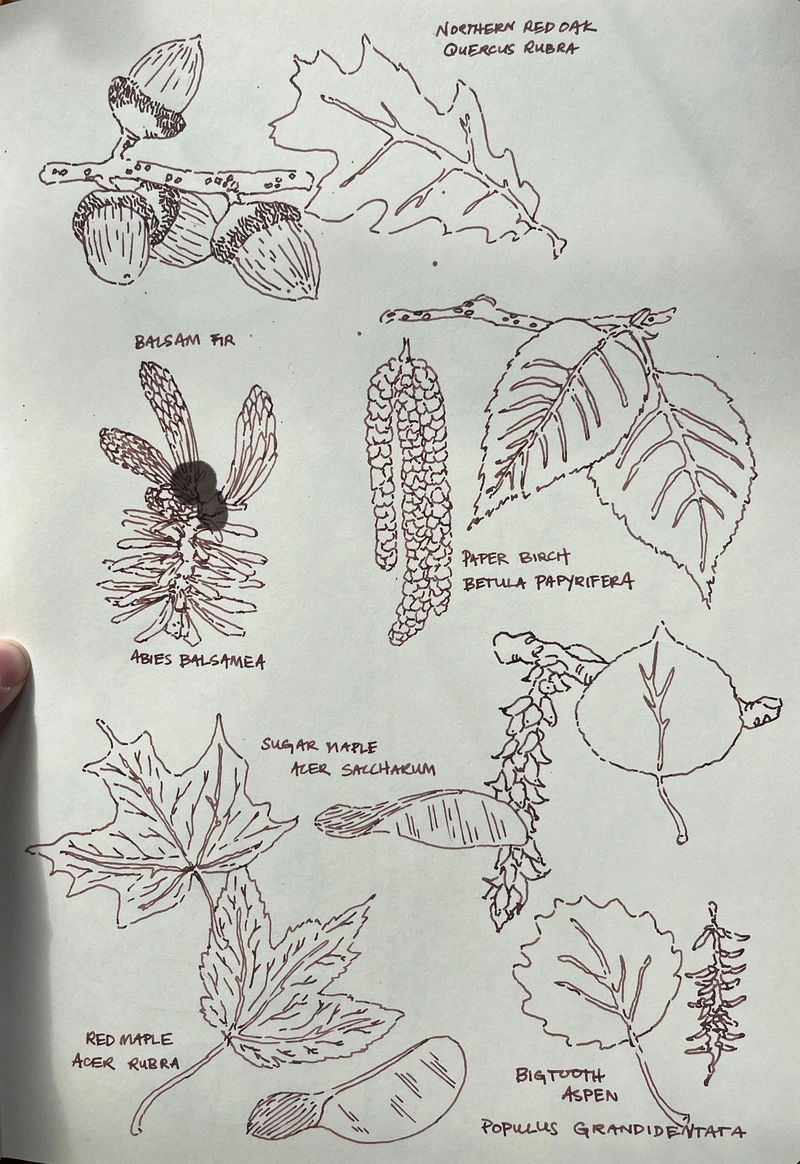 NORTHERN RED OAK
QUERCUS RUBRA
BALSAM FIR
ABIES BALSAMEA
PAPER BIRCH
BETULA PAPYRIFERA
SUGAR MAPLE
ACER SACCHARUM
RED MAPLE
ACER RUBRA
BIGTOOTH
ASPEN
POPULUS GRANDIDENTATA